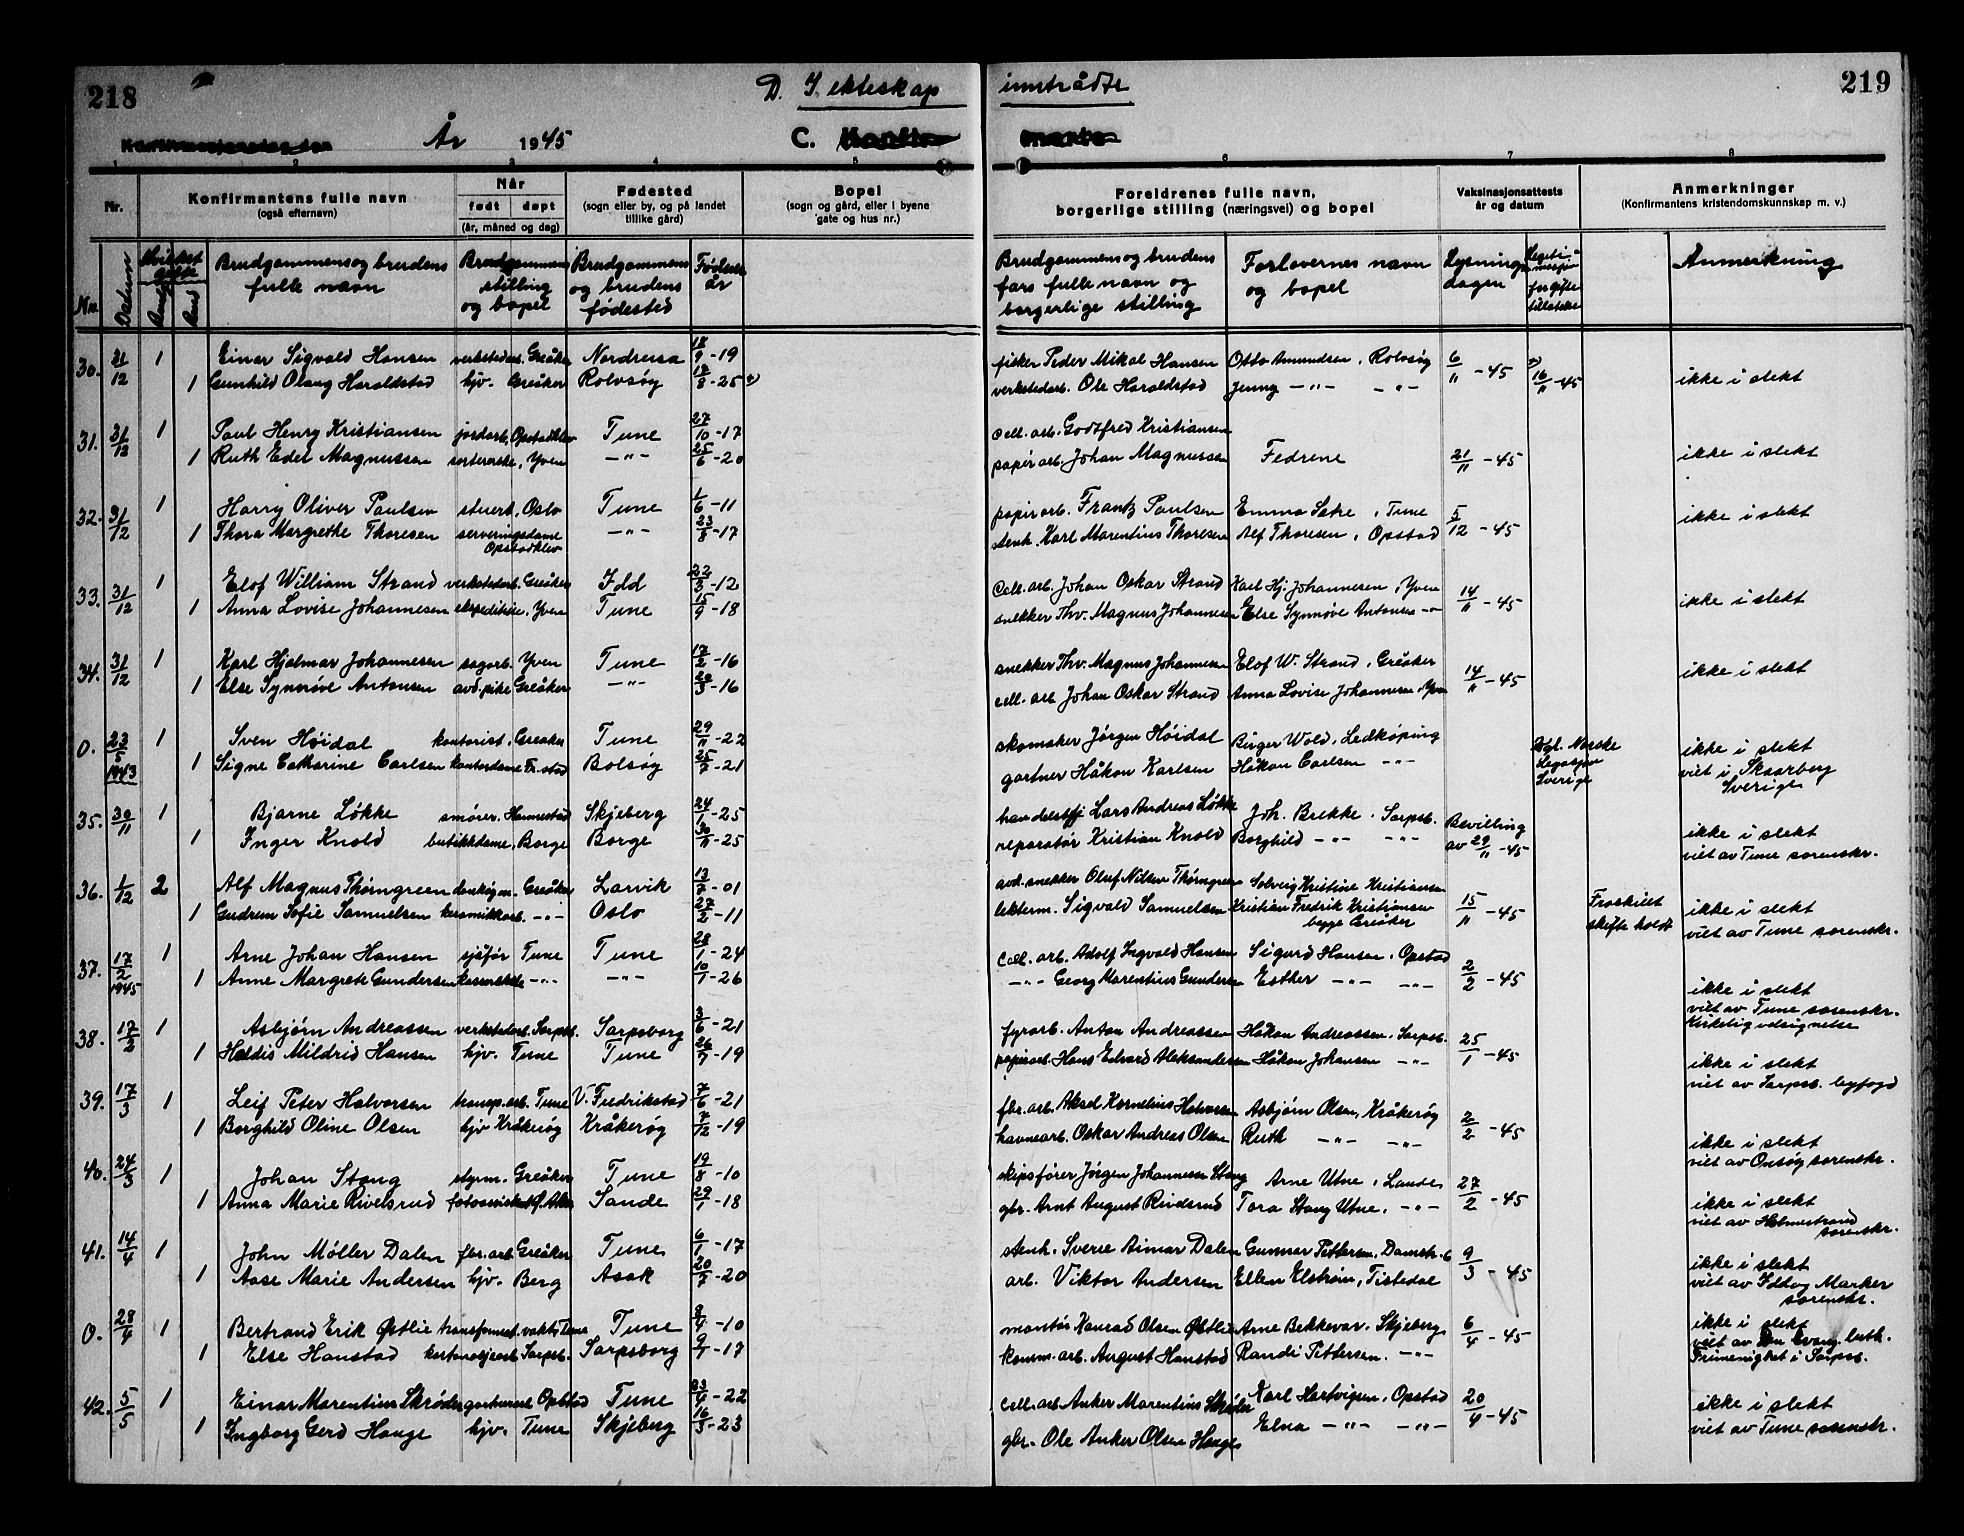 218
D. I ekteskap inntrådte
219
År 1945 C.
1 2 3 4 5 6 7 8
Nr. Konfirmantens fulle navn (også efternavn) Når født døpt (år, måned og dag) Fødested (sogn eller by, og på landet tillike gård) Bopel (sogn og gård, eller i byene gate og hus nr.) Foreldrenes fulle navn, borgerlige stilling (næringsvei) og bopel Vaksinasjonsattests år og datum Anmerkninger (Konfirmantens kristendomskunnskap m. v.)
Nr. Datum Hvilket gifte Brudg. Brud Brudgommens og brudens fulle navn Brudgommens stilling og bopel Brudgommens og brudens fødested Fødselsår Brudgommens og brudens fars fulle navn og borgerlige stilling Forlovernes navn og bopel Lysningsdagen Anmerkning
30. 31/12 1 Einar Sigvald Hansen verkstedarb. Greåker Nordreisa 18/9-19 fisker Peder Mikal Hansen Otto Amundsen, Rolvsøy 6/11-45
1 Gunhild Olaug Haraldstad hjv. Greåker Rolvsøy 18/8-25 *) verkstedarb. Ole Haraldstad Jenny -"- -"- *) 16/11-45 ikke i slekt
31. 31/12 1 Paul Henry Kristiansen jordarb. Opstadklev Tune 27/10-17 cell. arb. Godtfred Kristiansen
1 Ruth Edel Magnussen sorterske, Yven -"- 25/6-20 papirarb. Johan Magnussen Fedrene 21/11-45 ikke i slekt
32. 31/12 1 Harry Oliver Paulsen stuert, Oslo Tune 1/6-11 papirarb. Frantz Paulsen Emma Sætre, Tune 5/12-45 ikke i slekt
1 Thora Margrethe Thoresen serveringsdame Opstadklev -"- 23/8-17 stenh. Karl Marentius Thoresen Alf Thoresen, Opstad
33. 31/12 1 Elof William Strand verkstedarb. Greåker Idd 22/3-12 Cell. arb. Johan Oskar Strand Karl Hj. Johannesen, Yven 14/11-45 ikke i slekt
1 Anna Lovise Johannesen ekspeditrise, Yven Tune 15/9-18 snekker Thv. Magnus Johannesen Else Synnøve Antonsen -"-
34. 31/12 1 Karl Hjalmar Johannesen sagarb. Yven Tune 17/2-16 snekker Thv. Magnus Johannesen Elof W. Strand, Greåker 14/11-45 ikke i slekt
1 Else Synnøve Antonsen avd. pike Greåker -"- 20/3-16 cell. arb. Johan Oskar Strand Anna Lovise Johannesen, Yven
0. 23/5 1943 1 Sven Høidal kontorist, Greåker Tune 29/11-22 skomaker Jørgen Høidal Birger Wold, Ledkøping Kgl. Norske Legasjon Sverige ikke i slekt
1 Signe Catharine Carlsen kontordame Fr.stad Bolsøy 25/7-21 gartner Håkon Karlsen Håkon Carlsen -"- viet i Skaarberg Sverige
35. 30/11 1 Bjarne Løkke smører. Hannestad Skjeberg 24/1-25 handelsbetj. Lars Andreas Løkke Joh. Brekke, Sarpsb. Bevilling av 29/11-45 ikke i slekt
1 Inger Knold butikkdame, Borge Borge 30/11-25 reparatør Kristian Knold Borghild -"- -"- viet av Tune sorenskr.
36. 1/12 2 Alf Magnus Thørngreen donkeym. Greåker Larvik 13/7-01 avd. snekker Oluf Nilsen Thørngren Solveig Kristine Kristiansen 15/11-45 Fraskilt ikke i slekt
1 Gudrun Sofie Samuelsen keramikkarb. -"- Oslo 27/2-11 lekterm. Sigvald Samuelsen Kristian Fredrik Kristiansen begge Greåker skifte holdt viet av Tune sorenskr.
37. 17/2 1945 1 Arne Johan Hansen sjåfør Tune Tune 28/1-24 Cell. arb. Adolf Ingvald Hansen Sigurd Hansen, Opstad 2/2-45
1 Anne Margrete Gundersen kassererske -"- -"- 10/1-26 -"- Georg Marentius Gundersen Esther -"- -"- ikke i slekt viet av Tune sorenskr. Kirkelig velsignelse
38. 17/2 1 Asbjørn Andreassen verkstedarb. Sarpsb. Sarpsborg 3/6-21 fyrarb. Anton Andreassen Håkon Andreassen, Sarpsb. 25/1-45
1 Haldis Mildrid Hansen hjv. Tune Tune 26/7-19 papirarb. Hans Edvard Aleksandersen Håkon Johansen -"- ikke i slekt viet av Sarpsb. byfogd
39. 17/3 1 Leif Peter Halvorsen transp.arb. Tune V. Fredrikstad 7/6-21 fbr. arb. Aksel Kornelius Halvorsen Asbjørn Olsen, Kråkerøy 2/2-45
1 Borghild Oline Olsen hjv Kråkerøy Kråkerøy 7/12-19 havnearb. Oskar Andreas Olsen Ruth -"- -"- ikke i slekt viet av Onsøy sorenskr.
40. 24/3 1 Johan Stang styrm. Greåker Tune 19/8-10 skipsfører Jørgen Johannesen Stang Arne Utne, Sande 27/2-45
1 Anna Marie Rivelsrud Sande 29/1-18 gbr. Arnt August Rivelsrud Tora Stang Utne, -"- ikke i slekt viet av Holmestrand sorenskr.
41. 14/4 1 John Møller Dalen fbr. arb. Greåker Tune 6/1-17 stenh. Sverre Aimar Dalen Gunnar Pettersen, Damstr. 6 9/3-45 ikke i slekt
1 Aase Marie Andersen hjv. Berg Asak 20/7-20 arb. Viktor Andersen Ellen Elstrøm, Tistedal viet av Idd og Marker sorenskr.
0. 28/4 1 Bertrand Erik Østlie transformat. vakt, Tune Tune 3/4-10 montør Konrad Olsen Østlie Arne Bekkevar, Skjeberg 6/4-45 ikke i slekt
1 Else Hanstad kartonasjearb Sarpsb. Sarpsborg 9/7-17 komm. arb. August Hanstad Randi Pettersen, -"- viet av Den Evang. luth. Frimenighet i Sarpsb.
42. 5/5 1 Einar Marentius Skrøder Opstad Tune 23/4-22 cell. arb. Anker Marentius Skrøder Karl Hartvigsen, Opstad 20/4-45 ikke i slekt
1 Ingborg Gerd Hauge hjv. Tune Skjeberg 16/3-23 gbr. Ole Anker Olsen Hauge Elna -"- -"- viet av Tune sorenskr.